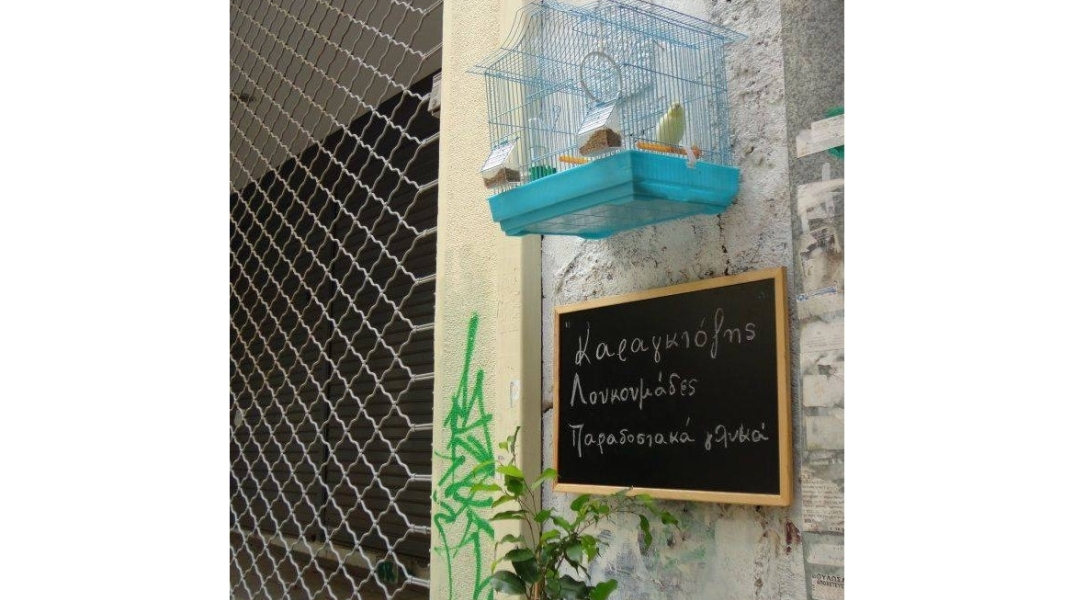 " Καραγκιόζης "
Λουκουμάδες
Παραδοσιακά γλυκά